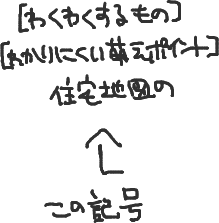 [わくわくするもの]
[わかりにくい萌えポイント]
住宅地図の
この記号